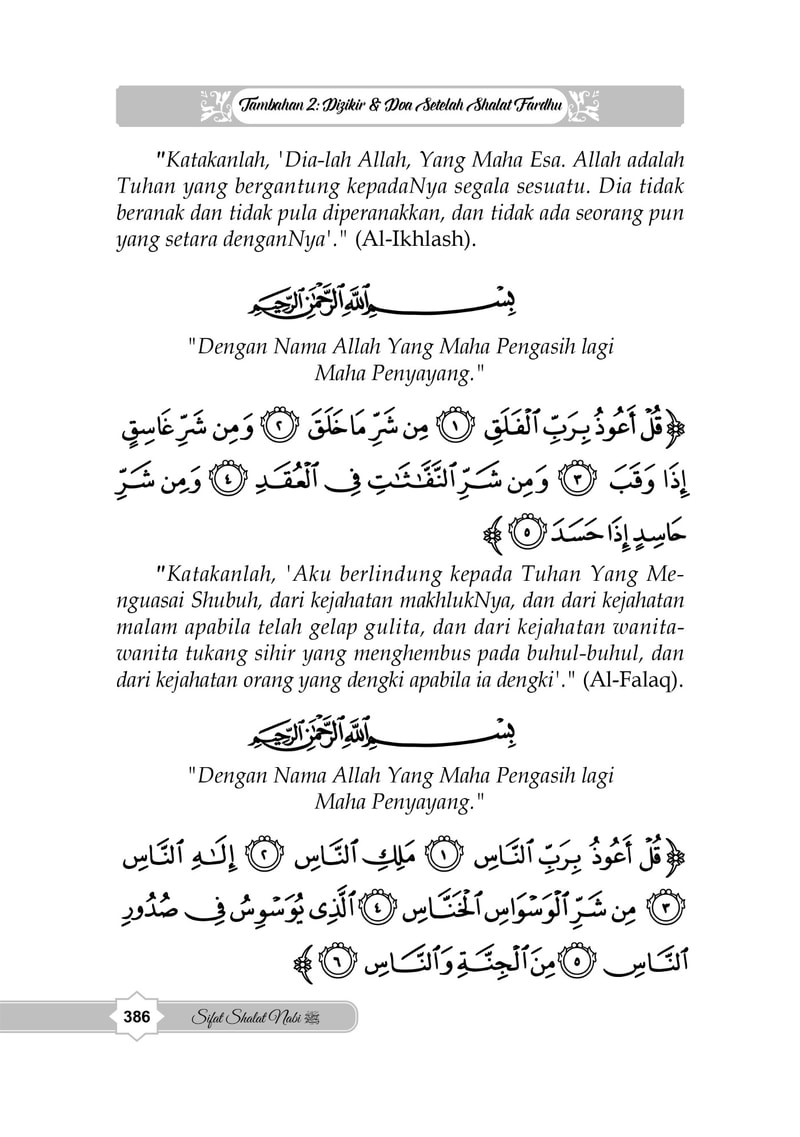 Tambahan 2: Dizikir & Doa Setelah Shalat Fardhu
"Katakanlah, 'Dia-lah Allah, Yang Maha Esa. Allah adalah
Tuhan yang bergantung kepadaNya segala sesuatu. Dia tidak
beranak dan tidak pula diperanakkan, dan tidak ada seorang pun
yang setara denganNya'." (Al-Ikhlash).
بِسْمِ اللَّهِ الرَّحْمَٰنِ الرَّحِيمِ
"Dengan Nama Allah Yang Maha Pengasih lagi
Maha Penyayang."
﴿قُلْ أَعُوذُ بِرَبِّ ٱلْفَلَقِ ١ مِن شَرِّ مَا خَلَقَ ٢ وَمِن شَرِّ غَاسِقٍ
إِذَا وَقَبَ ٣ وَمِن شَرِّ ٱلنَّفَّٰثَٰتِ فِى ٱلْعُقَدِ ٤ وَمِن شَرِّ
حَاسِدٍ إِذَا حَسَدَ ٥﴾
"Katakanlah, 'Aku berlindung kepada Tuhan Yang Me-
nguasai Shubuh, dari kejahatan makhlukNya, dan dari kejahatan
malam apabila telah gelap gulita, dan dari kejahatan wanita-
wanita tukang sihir yang menghembus pada buhul-buhul, dan
dari kejahatan orang yang dengki apabila ia dengki'." (Al-Falaq).
بِسْمِ اللَّهِ الرَّحْمَٰنِ الرَّحِيمِ
"Dengan Nama Allah Yang Maha Pengasih lagi
Maha Penyayang."
﴿قُلْ أَعُوذُ بِرَبِّ ٱلنَّاسِ ١ مَلِكِ ٱلنَّاسِ ٢ إِلَٰهِ ٱلنَّاسِ
٣ مِن شَرِّ ٱلْوَسْوَاسِ ٱلْخَنَّاسِ ٤ ٱلَّذِى يُوَسْوِسُ فِى صُدُورِ
ٱلنَّاسِ ٥ مِنَ ٱلْجِنَّةِ وَٱلنَّاسِ ٦﴾
386 Sifat Shalat Nabi ﷺ